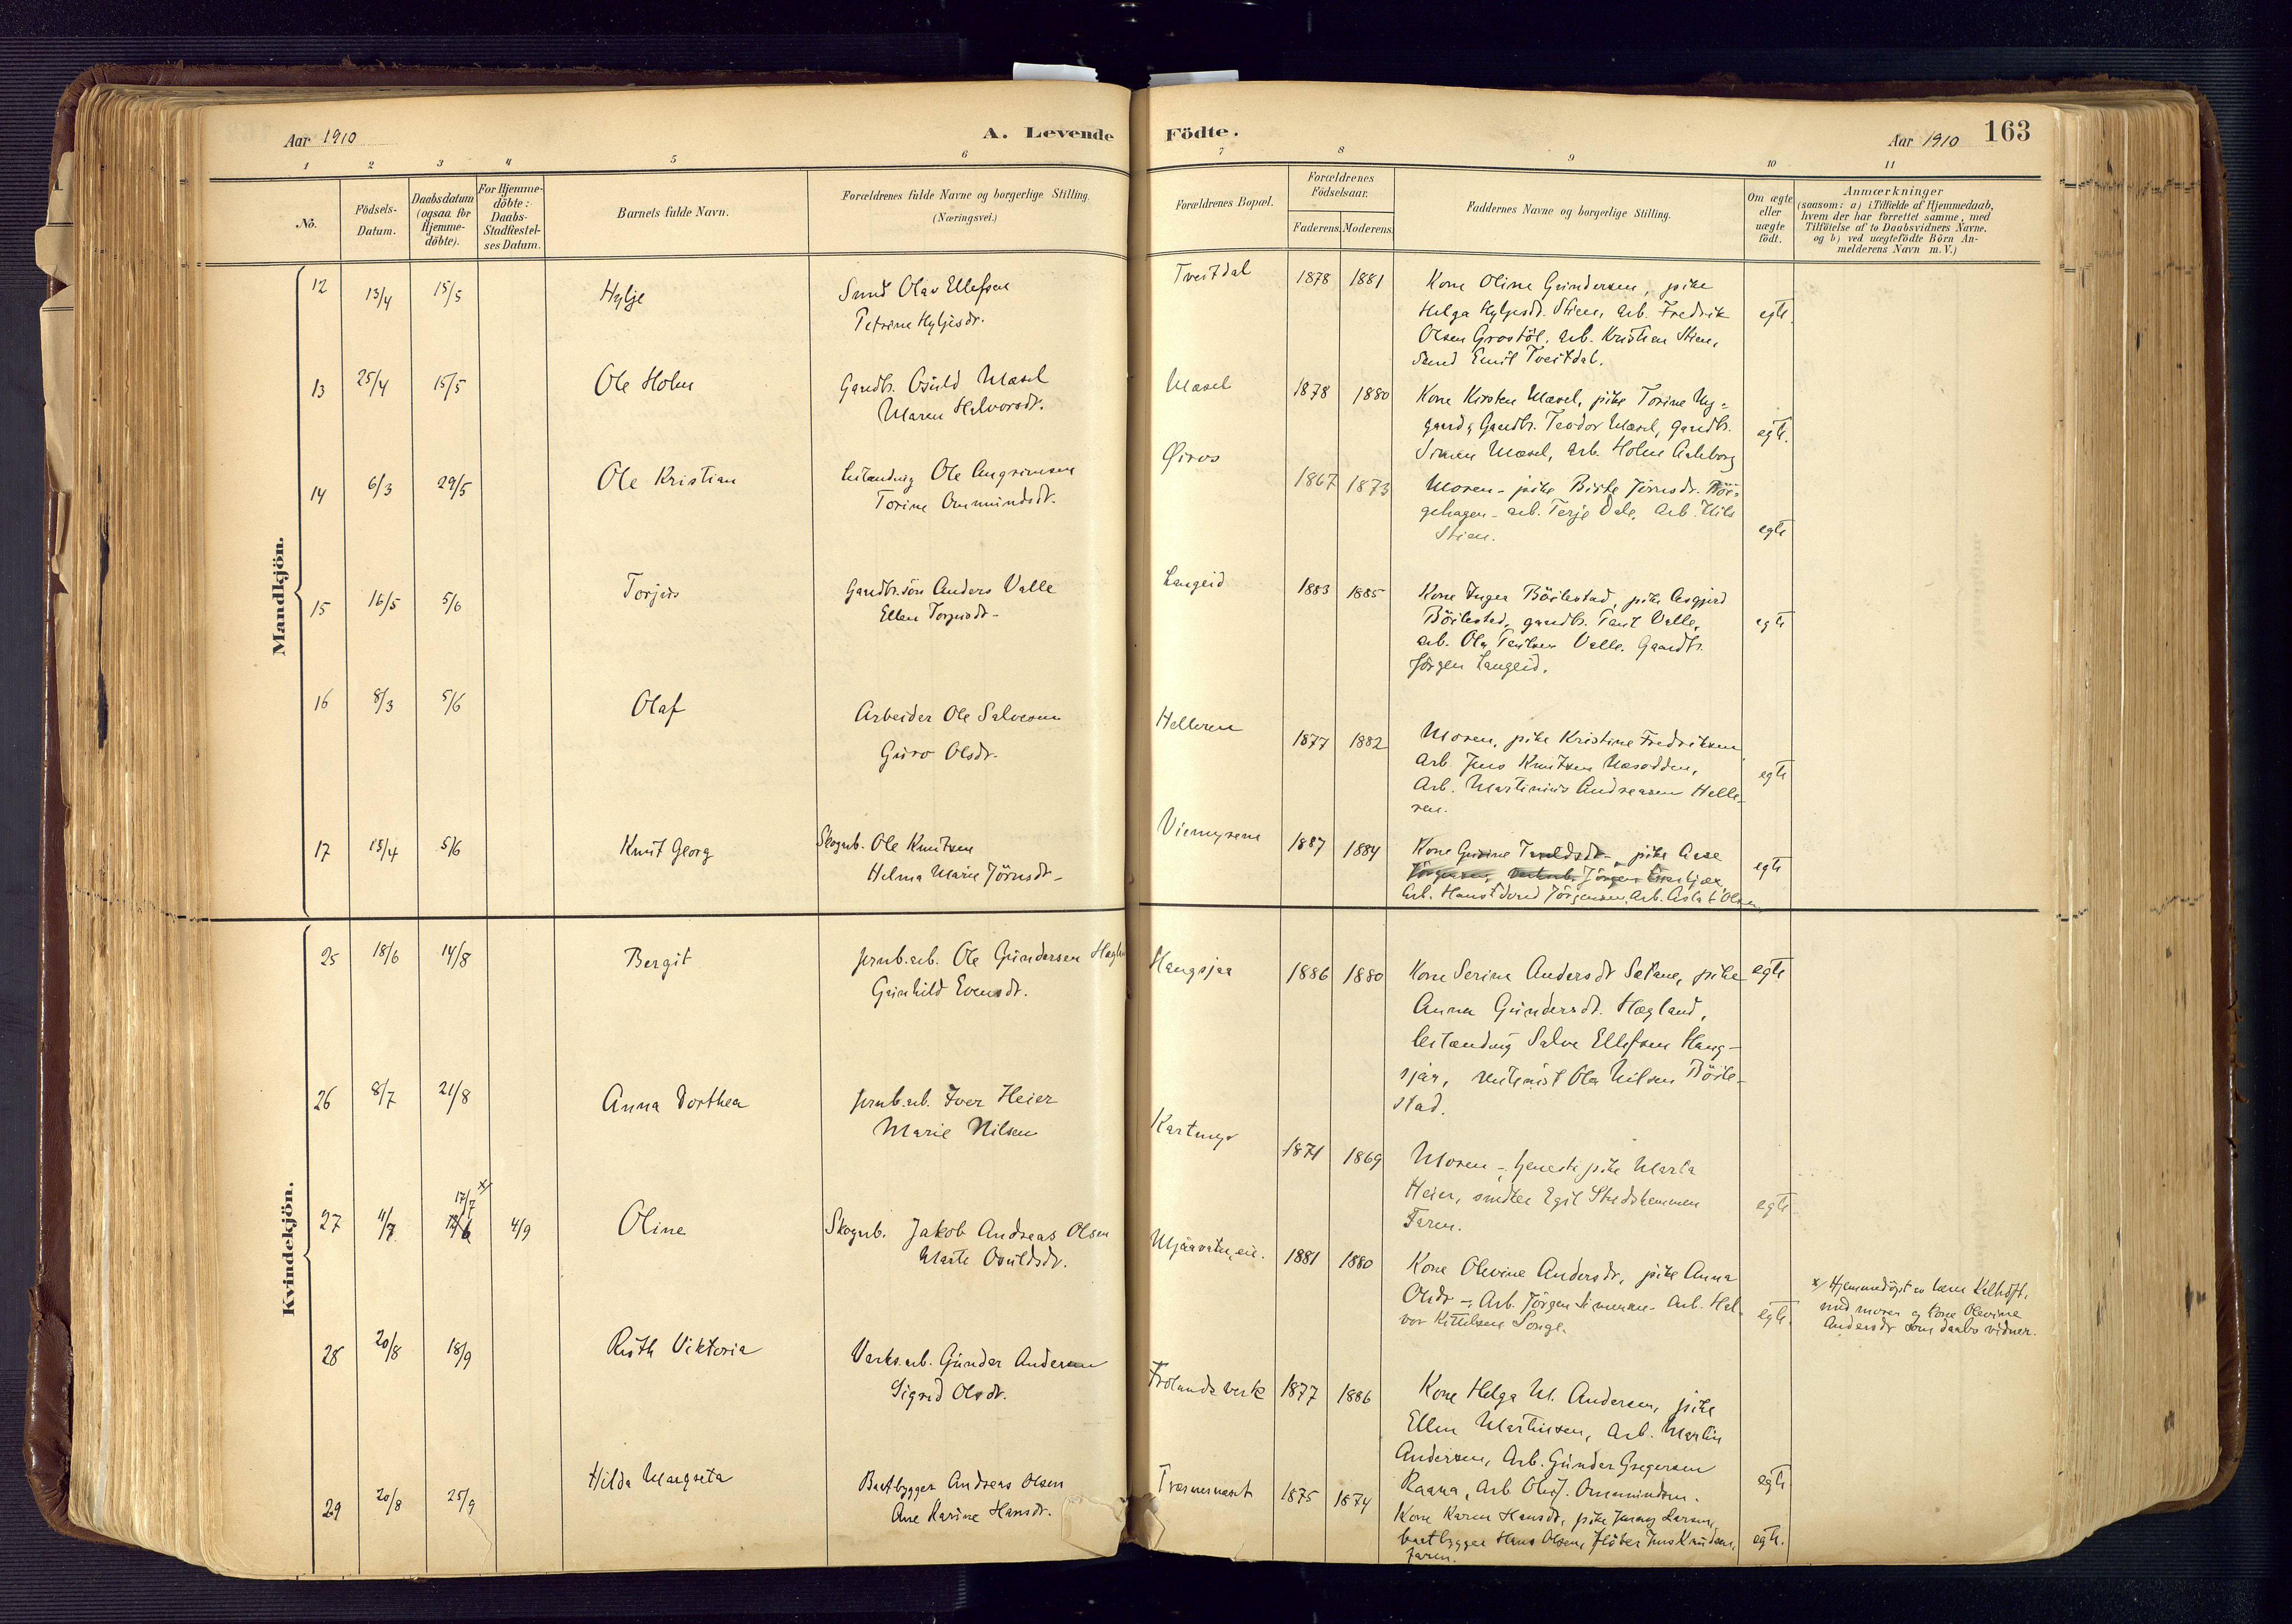 Aar 1910
A. Levende Födte.
Aar 1910
163
1 2 3 4 5 6 7 8 9 10 11
No.
Födsels-Datum.
Daabsdatum (ogsaa for Hjemme-döbte).
For Hjemme-döbte: Daabs-Stadfæstel-ses Datum.
Barnets fulde Navn.
Forældrenes fulde Navne og borgerlige Stilling.
(Næringsvei.)
Forældrenes Bopæl.
Forældrenes Födselsaar.
Faderens. Moderens.
Faddernes Navne og borgerlige Stilling.
Om ægte eller uægte födt.
Anmærkninger
(saasom: a) i Tilfælde af Hjemmedaab,
hvem der har forrettet samme, med
Tilföielse af to Daabsvidners Navne,
og b) ved uægtefödte Börn An-
melderens Navn m. V.)
Mandkjön.
12 15/4 15/5 Hylje
Smed Olav Ellefsen
Petrine Hyljesdr.
Tveitdal 1878 1881
Kone Oline Gundersen, pike
Helga Hyljesdr. Stien, Arb. Fredrik
Olsen Grostöl, arb. Kristian Stien,
Smed Emil Tveitdal.
egte.
13 25/4 15/5 Ole Holm
Gaardbr. Osuld Mæsel
Maren Halvorsdr.
Mæsel 1878 1880
Kone Kirsten Mæsel, pike Torine Ny-
gaard, Gaardbr. Teodor Mæsel, gaardbr.
Simen Mæsel, arb. Holm
egte.
14 6/3 29/5 Ole Kristian
Leilænding Ole Angrimsen
Torine Ommundsdr.
1867 1873
Moren - pike Jörnsdr.
gehagen - arb. Terje Dale, Arb. Nils
Stien.
egte
15 16/5 5/6 Torjus
Gaardbr.sön Anders Valle
Ellen Torjusdr-
Langeid 1883 1885
Kone Inger Böilestad, pike Asgjerd
Böilestad, gaardbr. Valle,
arb. Ola Valle, Gaardbr.
Jörgen Langeid.
egte
16 8/3 5/6 Olaf
Arbeider Ole Salvesen
Guro Olsdr.
Helleren 1877 1882
Moren, pike Kristine Fredriksen
Arb. Jens Knutsen Næsodden,
Arb. Martinius Andreasen Helle-
ren.
egte
17 15/4 5/6 Knut Georg
Skogarb. Ole Knutsen
Helma Marie Jörnsdr-
Viemyrene 1887 1884
Kone pike Aase
Arb. Jörgensen, Arb. Aslak Olsen
egte
Kvindekjön.
25 18/6 14/8 Bergit
Jernb.arb. Ole Gundersen
Gunhild Evensdr.
Haugsjaa 1886 1880
Kone Serina Andersdr Sætane, pike
Anna Gundersdr. Hægland,
leilænding Salve Ellefsen Haug-
sjaa, Ola Nilsen Böile-
stad.
egte
26 8/7 21/8 Anna Dorthea
Jernb.arb. Iver Heier
Marie Nilsen
Kartmyr 1871 1869
Moren -, tjeneste pike Marta
Heier, Egil
Faren.
egte
27 11/7 17/7 x/ 4/9 Oline
Skogarb. Jakob Andreas Olsen
Marte Osuldsdr.
Mjaavatn, eie. 1881 1880
Kone Olevine Andersdr, pike Anna
Olsdr -, Arb. Jörgen Simensen - Arb. Hal-
vor Kittelsen Songe.
egte.
x/ Hjemmedöpt av
med moren og kone Olevine
Andersdr som daabsvidner.
28 20/8 18/9 Ruth Viktoria
Verks.arb. Gunder Andersen
Sigrid Olsdr.
Frolands verk 1877 1886
Kone Helga M. Andersen, pike
Ellen Martinsen, Arb. Martin
Andersen, Arb. Gunder Gregersen
Raana, Arb Olaf Ommundsen.
egte
29 20/8 25/9 Hilda Margreta
Baatbygger Andreas Olsen
Ane Karine Hansdr.
1875 1874
Kone Karen Hansdr, pike Jenny Larsen,
baatbygger Hans Olsen, Flöter Jens Knudsen,
faren.
egte.